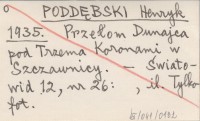 PODDĘBSKI Henryk
1935. Przełom Dunajca
pod Trzema Koronami w
Szczawnicy. – Świato-
wid 12, nr 26: , il. Tylko
fot.